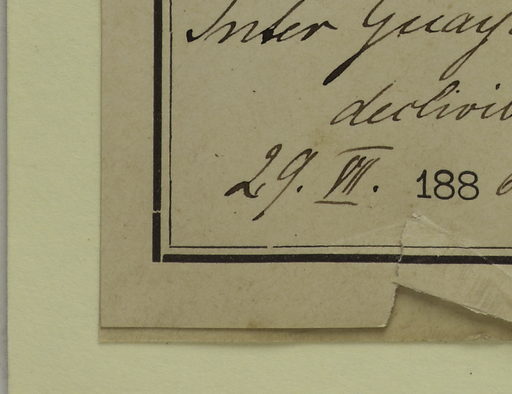 Inter Guay
declivi
29. VII. 188